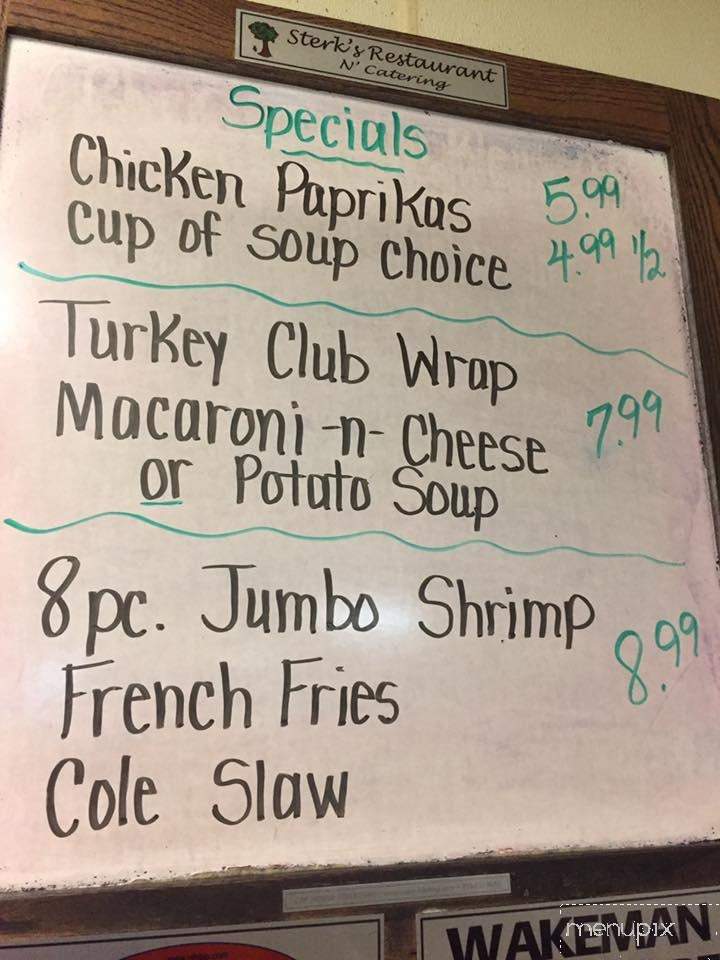 Sterk's Restaurant
N' Catering
Specials
Chicken Paprikas 5.99
cup of soup choice 4.99 1/2
Turkey Club Wrap
Macaroni -n- Cheese 7.99
or Potato Soup
8 pc. Jumbo Shrimp
French Fries 8.99
Cole Slaw
WAKEMAN
menupix